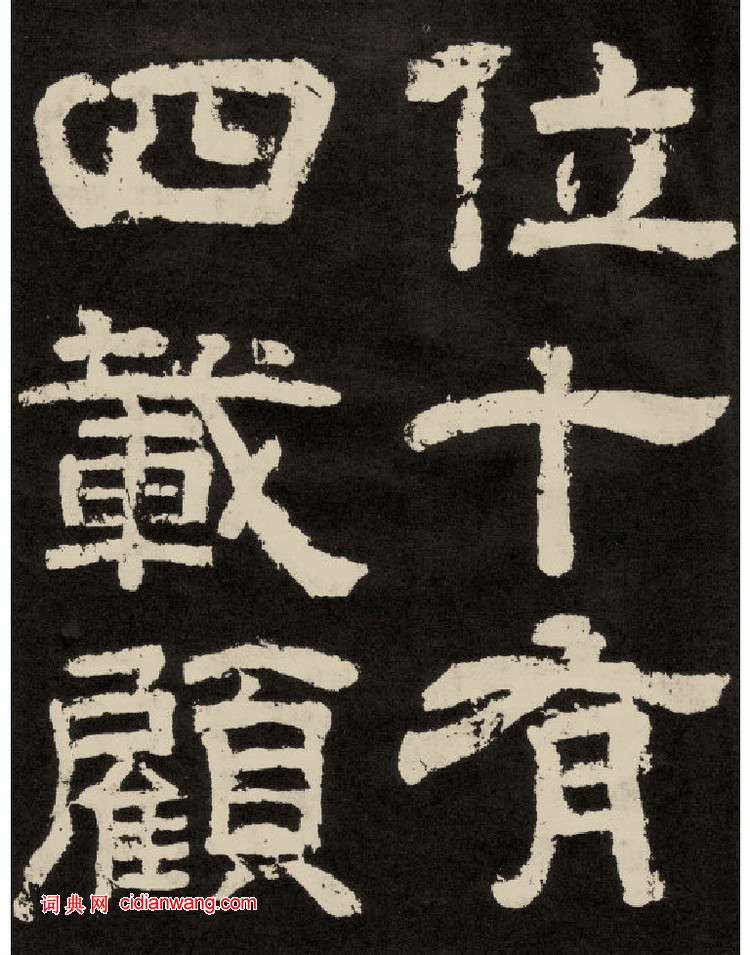 位十有
四載顧
词典网 cidianwang.com